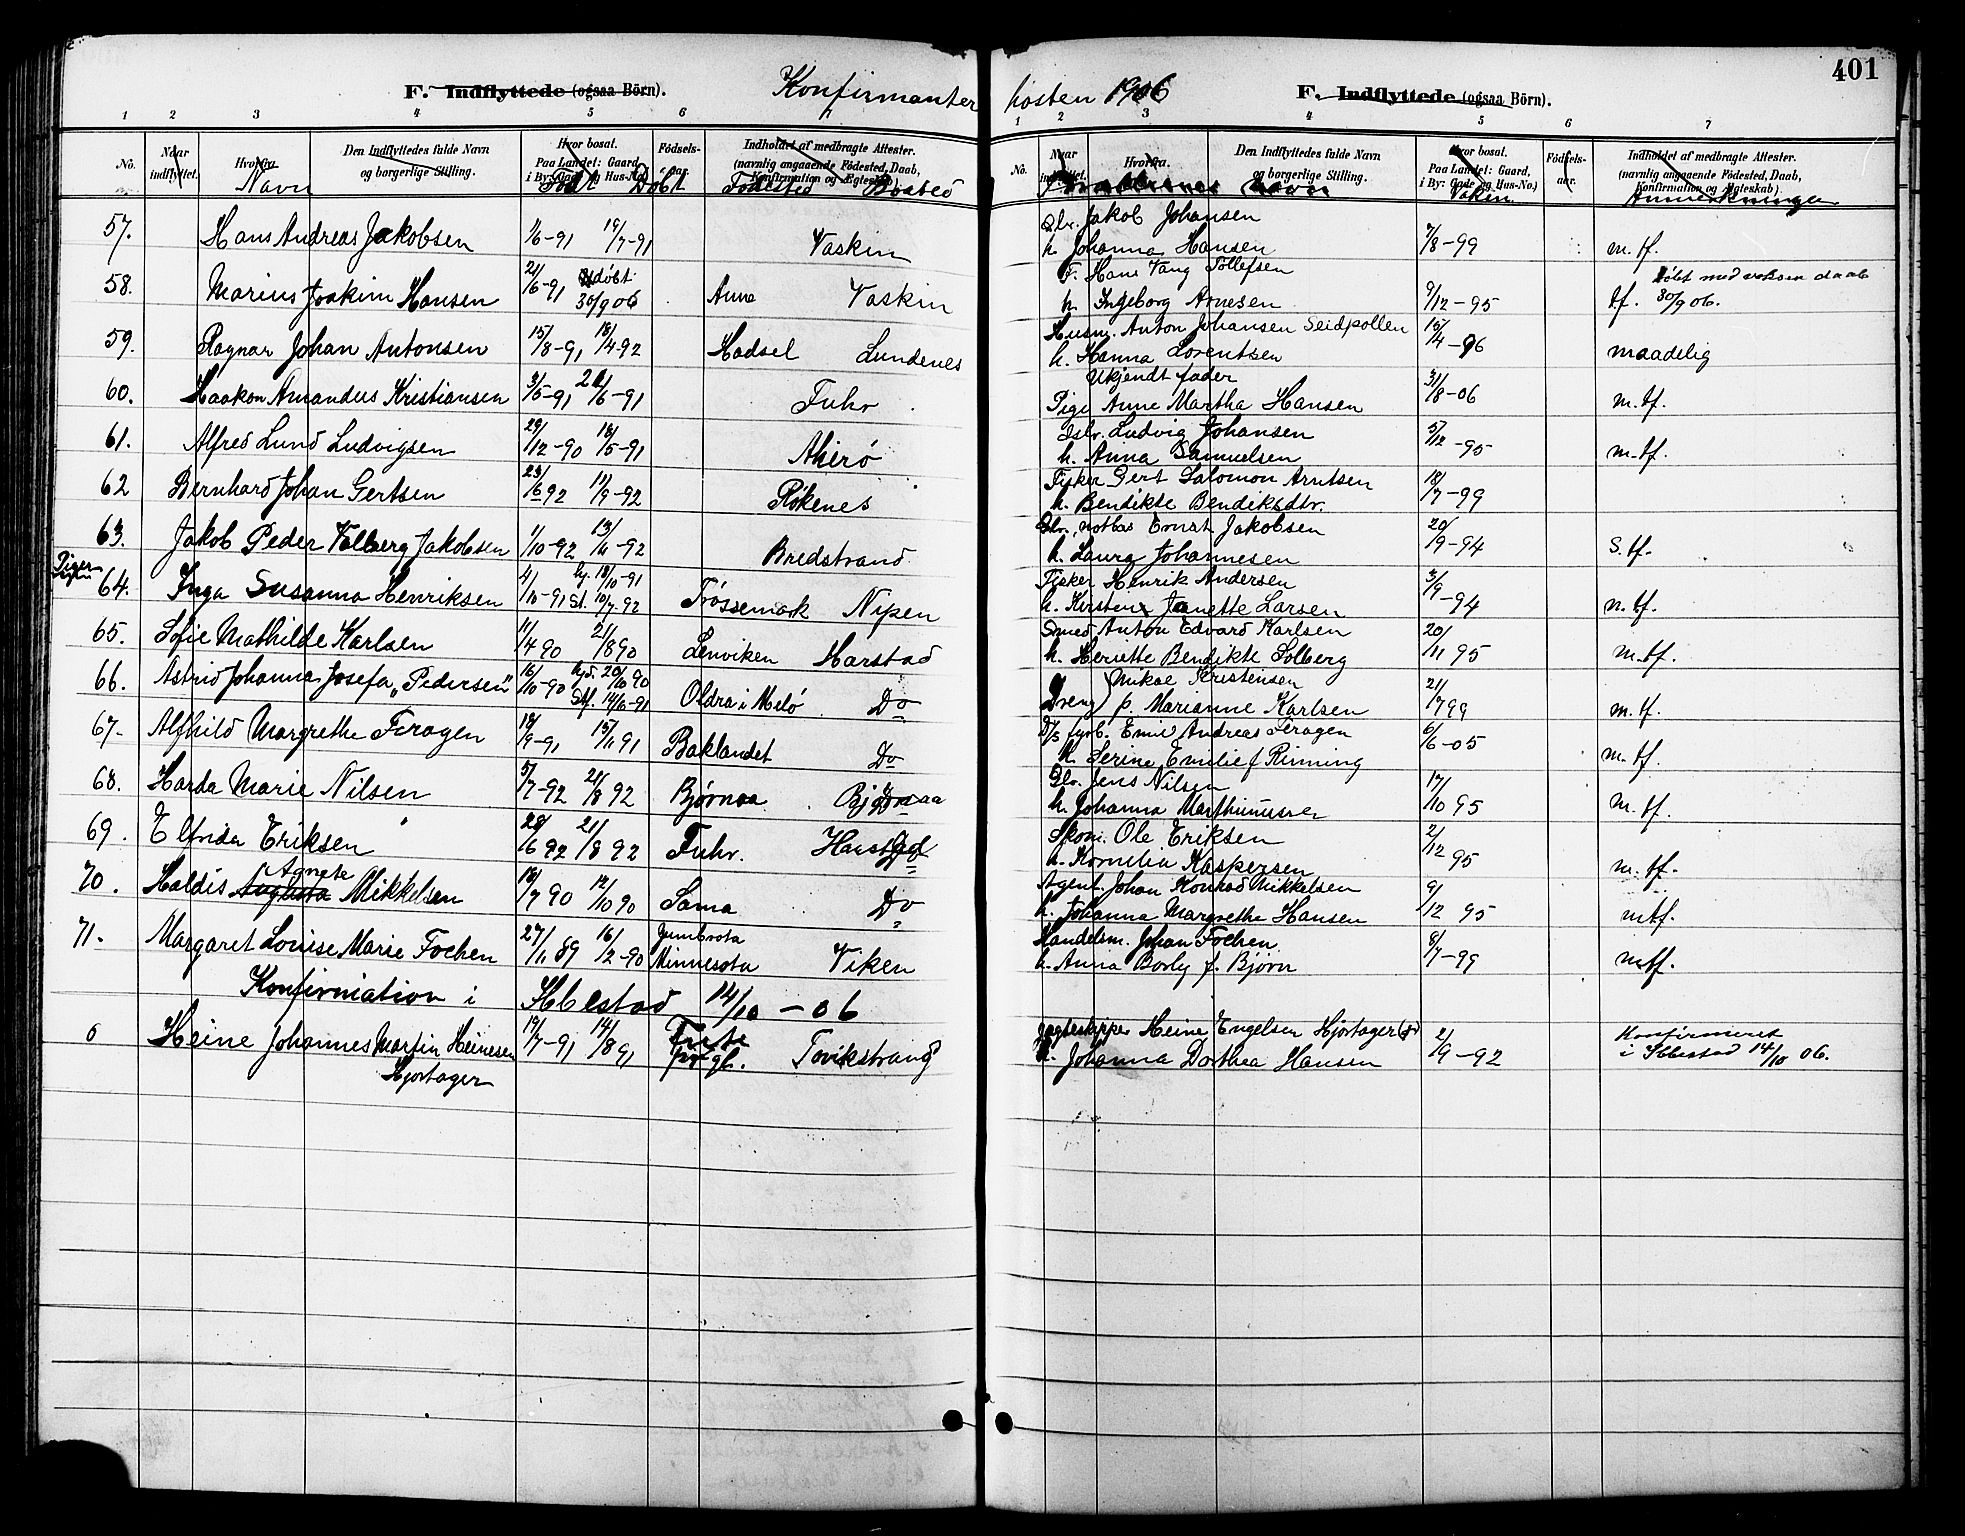 401
F. Indflyttede (ogsaa Börn). Konfirmanter hösten 1906 F. Indflyttede (ogsaa Börn).
1 2 3 4 5 6 7 1 2 3 4 5 6 7
No. Naar indflyttet. Hvorfra. Den Indflyttedes fulde Navn og borgerlige Stilling. Hvor bosat. Paa Landet: Gaard, i By: Gade og Hus-No.) Födsels-aar. Indholdet af medbragte Attester. (navnlig angaaende Födested, Daab, Konfirmation og Ægteskab).
No. Naar indflyttet. Hvorfra. Den Indflyttedes fulde Navn og borgerlige Stilling. Hvor bosat. Paa Landet: Gaard, i By: Gade og Hus-No.) Födsels-aar. Indholdet af medbragte Attester. (navnlig angaaende Födested, Daab, Konfirmation og Ægteskab).
Navn Født Døbt Fødested Bosted Forældrenes navn Vakcin Anmerkninger
57. Hans Andreas Jakobsen 1/6-91 19/7-91 Vaskin Jakob Johansen
h. Johanna Hansen 7/8-99 m. tf.
58. Marius Joakim Hansen 21/6-91 Udøbt 30/9 06 Anna Vaskin F. Hans Vang Tollefsen
h. Ingeborg Arnesen 9/12-95 tf. Døbt med voksen daab 30/9 06.
59. Ragnar Johan Antonsen 15/8-91 18/4-92 Hadsel Lundenes Husm. Anton Johansen Seidpollen
h. Hanna Lorentsen 16/4-96 maadelig
60. Haakon Amandus Kristiansen 3/5-91 21/6-91 Fuhr Ukjendt fader
Pige Anne Martha Hansen 31/8-06 m. tf.
61. Alfred Lund Ludvigsen 29/12-90 18/5-91 Akerö Ludvig Johansen
h. Anna Samuelsen 5/12-95 m. tf.
62 Bernhard Johan Gertsen 23/6 92 11/9-92 Rökenes Fisker Gert Salomon Arntsen
h. Bendikte Bendiksdtr. 18/7-99
63. Jakob Peder Volberg Jakobsen 1/10-92 13/11-92 Bredstrand notbas Ernst Jakobsen
h. Laura Johannesen 20/9-94 s. tf.
Piger
64. Inga Susanna Henriksen 4/10-91 hj. 18/10-91 St. 10/7-92 Trøssemark Nipen Fisker Henrik Andersen
h. Kirstine Janette Larsen 3/9-94 m. tf.
65. Sofie Mathilde Karlsen 11/4 90 21/8 90 Lenviken Harstad Smed Anton Edvard Karlsen
h. Heriette Bendikte Solberg 20/11 95 m. tf.
66. Astrid Johanna Josefa "Pedersen" 16/10-90 hjd. 20/10 90 Stf. 14/6-91 Oldra i Melö Do Mikal Kristensen
Dreng p. Marianne Karlsen 21/7 99 m. tf.
67- Alfhild Margrethe Feragen 18/9-91 15/11 91 Baklandet Do D/s fyrb. Emil Andreas Feragen
h. Serine Emilie f. Rinning 6/6-05 m. tf.
68. Harda Marie Nilsen 5/7-92 21/8 92 Bjørnaa Bjørnaa Jens Nilsen
h. Johanna Marthinussen 17/10 95 m. tf.
69. Elfrida Eriksen 28/6 92 21/8 92 Fuhr. Harstad Skom. Ole Eriksen
h. Kornelia Kaspersen 2/12 95 m. tf.
70. Haldis Augusta Agnete Mikkelsen 18/7 90 12/10 90 Sama Do Agent. Johan Konrad Mikkelsen
h. Johanna Margrethe Hansen 9/12 95 mtf.
71. Margaret Louise Marie Fochen 27/11 89 16/2-90 Zumbrota Minnesota Viken Handelsm. Johan Fochen
h. Anna Borly f. Bjørn 8/7-99 mtf.
Konfirmation i Ibestad 14/10-06
6 Heine Johannes Martin Heinesen Hjortager 19/7-91 14/8 91 Tovikstrand Jagteskipper Heine Engelsen Hjortager
h. Johanna Dorthea Hansen 2/9-92 Konfirmeret
i Ibbestad 14/10 06.